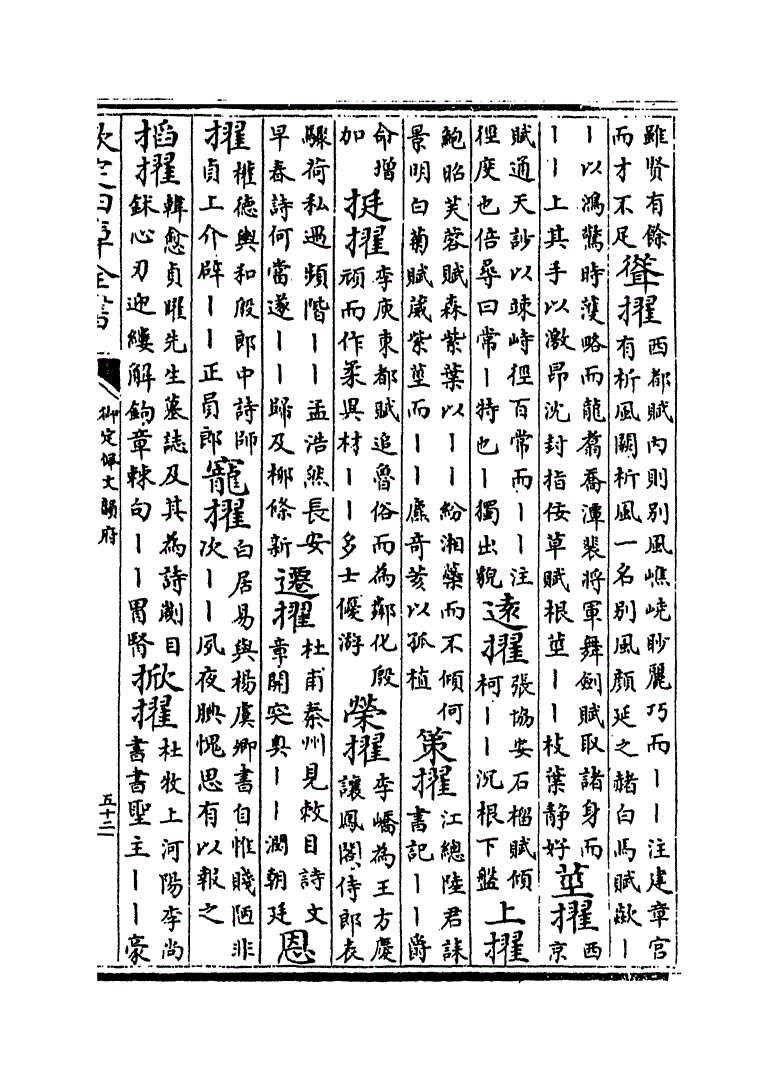 雖賢有餘
而才不足
聳擢
西都賦內則別風嶕嶢眇麗巧而丨丨注建章宮
有折風闕折風一名別風顏延之赭白馬賦歘丨
丨以鴻驚時濩略而龍翥喬潭裴將軍舞劍賦取諸身而
丨丨上其手以激昂沈封指佞草賦根莖丨丨枝葉静好
莖擢
西
京
賦通天訬以竦峙徑百常而丨丨注
徑度也倍尋曰常丨特也丨獨出貌
遠擢
張協安石榴賦傾
柯丨丨沉根下盤
上擢
鮑昭芙蓉賦森紫葉以丨丨紛湘蘂而不傾何
景明白菊賦葳紫莖而丨丨廡奇荄以孤植
策擢
江總陸君誄
書記丨丨爵
命增
加
挺擢
李庾東都賦追魯俗而為鄰化殷
頑而作柔異材丨丨多士優游
榮擢
李嶠為王方慶
讓鳳閣侍郎表
驟荷私遇頻階丨丨孟浩然長安
早春詩何當遂丨丨歸及柳條新
遷擢
杜甫秦州見敕目詩文
章開突奥丨丨潤朝廷
恩
擢
權德輿和殷郎中詩師
貞上介辟丨丨正員郎
寵擢
白居易與楊虞卿書自惟賤陋非
次丨丨夙夜腆愧思有以報之
搯擢
韓愈貞曜先生墓誌及其為詩劌目
鉥心刃迎縷解鉤章棘句丨丨胃腎
掀擢
杜牧上河陽李尚
書書聖主丨丨豪
欽定四庫全書
御定佩文韻府
五十二